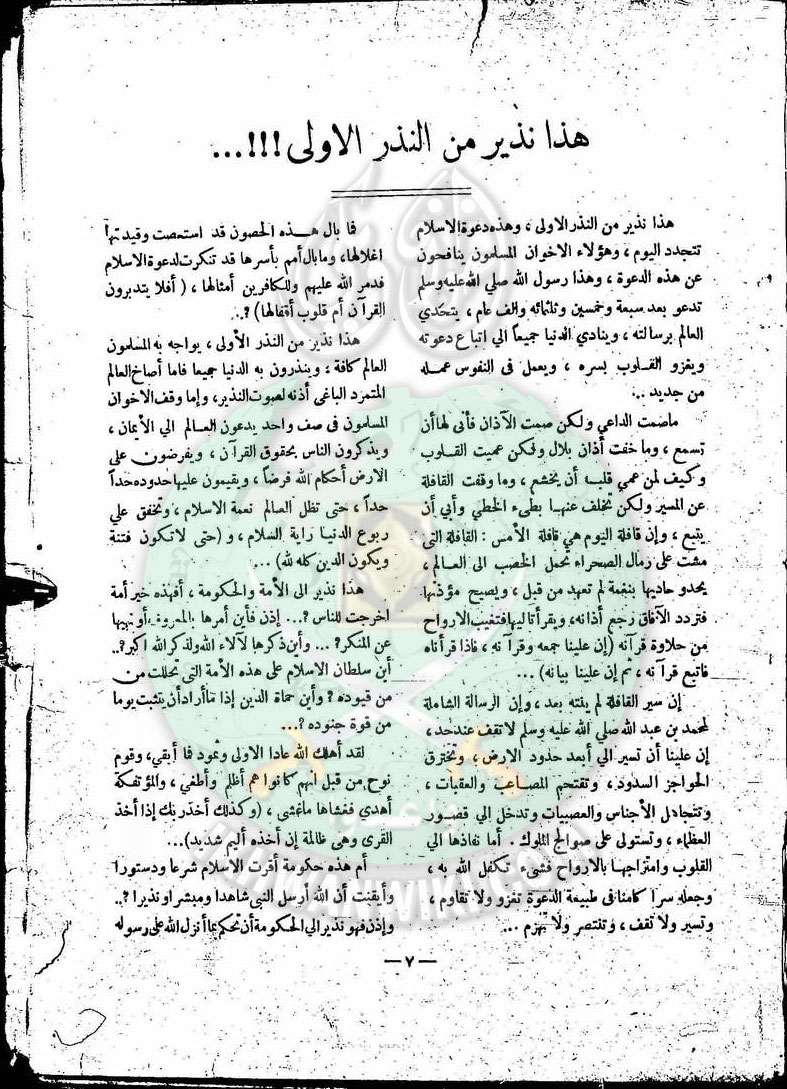 هذا نذير من النذر الاولى !!! ...
هذا نذير من النذر الاولى ، وهذه دعوة الاسلام
تتجدد اليوم ، وهؤلاء الاخوان المسلمون ينافحون
عن هذه الدعوة ، وهذا رسول الله صلي الله عليه وسلم
تدعو بعد سبعة وخمسين وثلثمائه والف عام ، يتحدي
العالم برسالته ، وينادي الدنيا جميعاً الى اتباع دعوته
ويغزو القلوب بسره ، ويعمل فى النفوس عمله
من جديد ..
ماصمت الداعي ولكن صمت الآذان فأنى لها أن
تسمع ، وما خفت أذان بلال ولكن عميت القلوب
وكيف لمن عمي قلبه أن يخشع ، وما وقفت القافلة
عن المسير ولكن تخلف عنها بطىء الخطي وأبي أن
يتبع ، وإن قافلة اليوم هي قافلة الأمس : القافلة التى
مشت على رمال الصحراء تحمل الخصب الى العالم ،
يحدو حاديها بنغمة لم تعهد من قبل ، ويصبح مؤذنها
فتردد الآفاق رجع أذانه ، ويقرأ تاليها فتغيب الارواح
من حلاوة قرآنه (إن علينا جمعه وقرآنه ، فاذا قرأناه
فاتبع قرآنه ، ثم إن علينا بيانه) ...
إن سير القافلة لم ينته بعد ، وإن الرسالة الشاملة
لمحمد بن عبد الله صلي الله عليه وسلم لا تقف عند حد ،
إن علينا أن تسير الي أبعد حدود الارض ، وتخترق
الحواجز السدود ، وتقتحم المصاعب والعقبات ،
وتتجادل الأجناس والعصبيات وتدخل الي قصور
العظماء ، وتستولى على صوالج الملوك . أما نفاذها الي
القلوب وامتزاجها بالارواح فشىء تكفل الله به ،
وجعله سرا كامنا فى طبيعة الدعوة تغزو ولا تقاوم ،
وتسير ولا تقف ، وتنتصر ولا تهزم ...
فا بال هذه الحصون قد استعصت وقيدتها
اغلالها ، وما بال أمم بأسرها قد تنكرت لدعوة الاسلام
فدمر الله عليهم وللكافرين أمثالها ، ( أفلا يتدبرون
القرآن أم قلوب أقفالها ) ؟..
هذا نذير من النذر الأولى ، يواجه به المسلمون
العالم كافة ، وينذرون به الدنيا جميعا فاما أصاخ العالم
المتمرد الباغى أذنه لصوت النذير ، وإما وقف الاخوان
المسلمون فى صف واحد يدعون العالم الي الأيمان ،
ويذكرون الناس بحقوق القرآن ، ويفرضون على
الارض أحكام الله فرضاً ، ويقيمون عليها حدوده حداً
حداً ، حتى تظل العالم نعمة الاسلام ، وتخفق علي
ربوع الدنيا راية السلام ، و ( حتى لا تكون فتنة
ويكون الدين كله لله ) ...
هذا نذير الى الأمة والحكومة ، أفهذه خير أمة
اخرجت للناس ؟... إذن فأين أمرها بالمعروف أو نهيها
عن المنكر ؟... وأين ذكرها لآلاء الله ولذكر الله اكبر ؟..
أين سلطان الاسلام على هذه الأمة التى تحللت من
من قيوده ؟ وأين حماة الدين إذا ماأراد أن يتثبت يوما
من قوة جنوده ؟...
لقد أهلك الله عادا الاولى وثمود فما أبقي ، وقوم
نوح من قبل أنهم كانوا هم أظلم وأطغي ، والمؤتفكة
أهدي فغشاها ماغشى ، ( وكذلك أخذ ربك إذا أخذ
القرى وهى ظالمة إن أخذه أليم شديد ) ...
أم هذه حكومة أقرت الاسلام شرعا ودستورا
وأيقنت أن الله أرسل النبي شاهدا ومبشرا ونذيرا ؟..
وإذن فهو نذير الي الحكومة أن تحكم بما أنزل الله على رسوله
— ٧ —